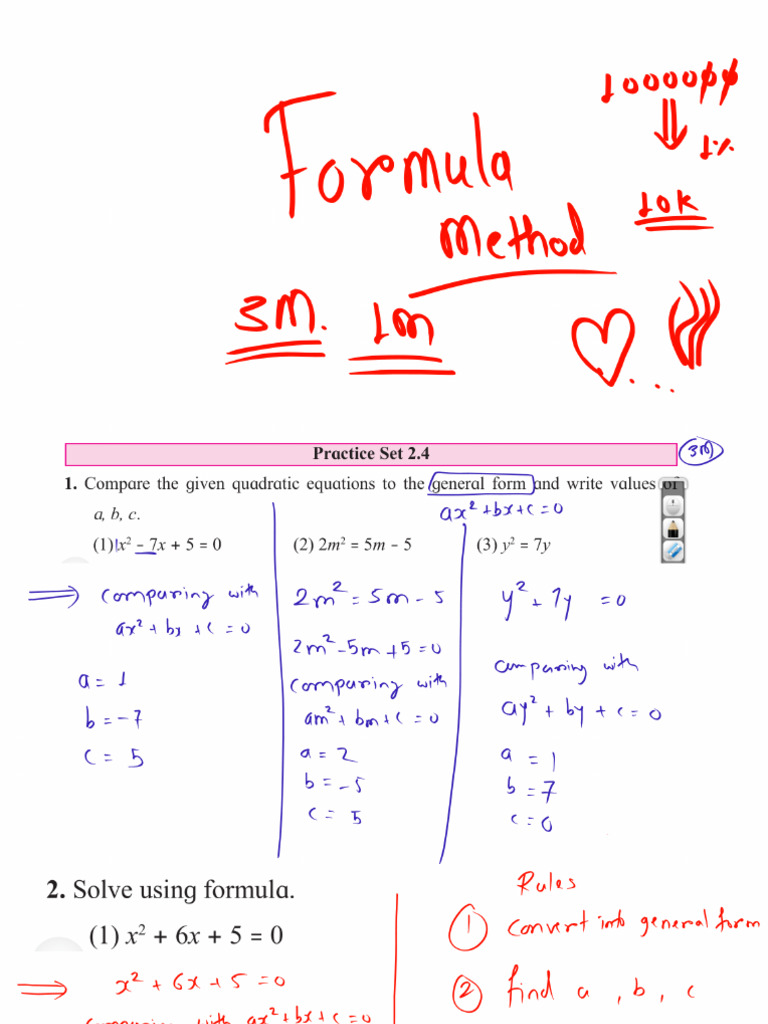 Formula
Method
100000
1%
10K
3M. 1M
Practice Set 2.4
3M
1. Compare the given quadratic equations to the general form and write values of
a, b, c.
ax² + bx + c = 0
(1) x² – 7x + 5 = 0
comparing with
ax² + bx + c = 0
a = 1
b = -7
c = 5
(2) 2m² = 5m – 5
2m² = 5m - 5
2m² - 5m + 5 = 0
Comparing with
am² + bm + c = 0
a = 2
b = -5
c = 5
(3) y² = 7y
y² + 7y = 0
comparing with
ay² + by + c = 0
a = 1
b = 7
c = 0
2. Solve using formula.
(1) x² + 6x + 5 = 0
x² + 6x + 5 = 0
comparing with ax² + bx + c = 0
Rules
1 Convert into general form
2 find a, b, c